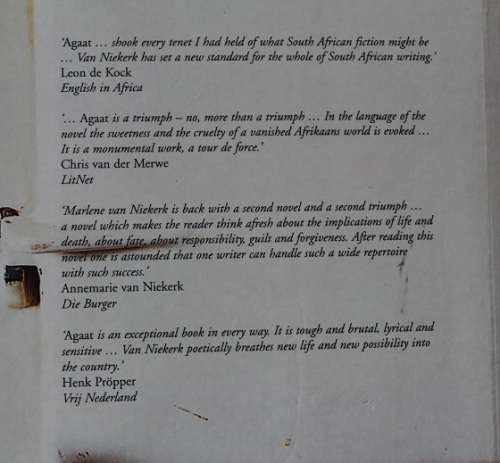 ‘Agaat … shook every tenet I had held of what South African fiction might be
… Van Niekerk has set a new standard for the whole of South African writing.’
Leon de Kock
English in Africa
‘… Agaat is a triumph – no, more than a triumph … In the language of
the novel the sweetness and the cruelty of a vanished Afrikaans world is evoked …
It is a monumental work, a tour de force.’
Chris van der Merwe
LitNet
‘Marlene van Niekerk is back with a second novel and a second triumph …
a novel which makes the reader think afresh about the implications of life and
death, about fate, about responsibility, guilt and forgiveness. After reading this
novel one is astounded that one writer can handle such a wide repertoire
with such success.’
Annemarie van Niekerk
Die Burger
‘Agaat is an exceptional book in every way. It is tough and brutal, lyrical and
sensitive … Van Niekerk poetically breathes new life and new possibility into
the country.’
Henk Pröpper
Vrij Nederland